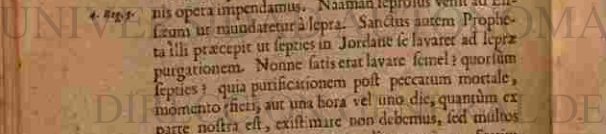 4. Reg. 5.
nis opera impendamus. Naaman leprosus venit ad Eli-
sęum ut mundaretur à lepra. Sanctus autem Prophe-
ta illi præcepit ut septies in Jordane se lavaret ad lepræ
purgationem. Nonne satis erat lavare semel? quorsum
septies? quia purificationem post peccatum mortale,
momento fieri, aut una hora vel uno die, quantùm ex
parte nostra est, existimare non debemus, sed multos